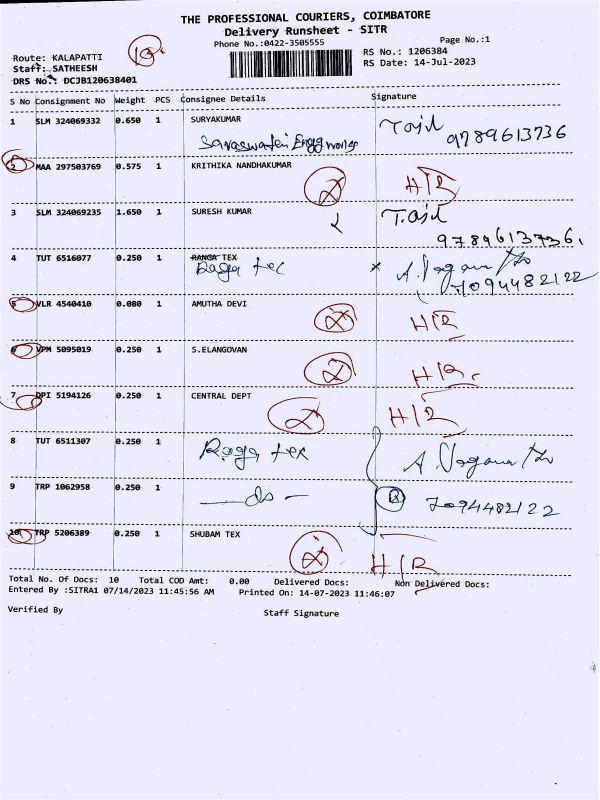 THE PROFESSIONAL COURIERS, COIMBATORE
Delivery Runsheet - SITR
Phone No.:0422-3505555
Page No.:1
Route: KALAPATTI
RS No.: 1206384
Staff: SATHEESH
RS Date: 14-Jul-2023
DRS No.: DCJB120638401
10
S No Consignment No Weight PCS Consignee Details Signature
1 SLM 324069332 0.650 1 SURYAKUMAR
Saraswathi Engg works
9789613736
2 MAA 297503769 0.575 1 KRITHIKA NANDHAKUMAR
H/R
3 SLM 324069235 1.650 1 SURESH KUMAR
9789613736.
4 TUT 6516077 0.250 1 RANGA TEX
Raga tex
7094482122
5 VLR 4540410 0.080 1 AMUTHA DEVI
H/R
6 VPM 5095019 0.250 1 S.ELANGOVAN
H/R.
7 DPI 5194126 0.250 1 CENTRAL DEPT
H/R
8 TUT 6511307 0.250 1 Raga tex
9 TRP 1062958 0.250 1 — do — 7094482122
10 TRP 5206389 0.250 1 SHUBAM TEX
H/R
Total No. Of Docs: 10 Total COD Amt: 0.00 Delivered Docs: Non Delivered Docs:
Entered By :SITRA1 07/14/2023 11:45:56 AM Printed On: 14-07-2023 11:46:07
Verified By Staff Signature